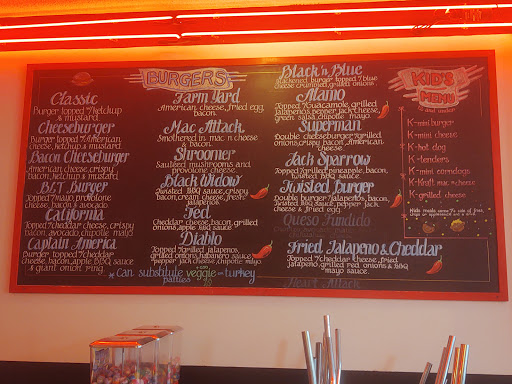 BURGERS
Classic
Burger topped w/ketchup
& mustard
Cheeseburger
Burger topped w/American
cheese, ketchup & mustard
Bacon Cheeseburger
American cheese, crispy
bacon, ketchup & mustard
BLT Burger
Topped w/mayo, provolone
cheese, bacon & avocado
California
Topped w/cheddar cheese, crispy
bacon, avocado, chipotle mayo
Captain America
Burger topped w/cheddar
cheese, bacon, apple BBQ sauce
& giant onion ring
Farm Yard
American cheese, fried egg,
bacon
Mac Attack
Smothered in mac n cheese
& bacon
Shroomer
Sauteed mushrooms and
provolone cheese
Black Widow
Twisted BBQ sauce, crispy
bacon, cream cheese, fresh
jalapeno
Ted
Cheddar cheese, bacon, grilled
onions, apple BBQ sauce
Diablo
Topped w/grilled jalapenos,
grilled onions, habanero sauce
pepper jack cheese, chipotle mayo
Can substitute veggie or turkey
patties
Black'n Blue
Blackened burger topped w/blue
cheese crumbles, grilled onions
Alamo
Topped w/Guacamole, grilled
jalapenos, pepper jack cheese,
green salsa, chipotle mayo
Superman
Double cheeseburger w/grilled
onions, crispy bacon, American
cheese
Jack Sparrow
Topped w/grilled pineapple, bacon,
twisted BBQ sauce
Twisted Burger
Double burger, jalapenos, bacon,
twisted BBQ sauce, pepper jack
cheese & fried egg
Queso Fundido
Fried Jalapeno & Cheddar
Topped w/cheddar cheese, fried
jalapeno, grilled red onions & BBQ
mayo sauce
Heart Attack
KID'S
MENU
K-mini burger
K-mini cheese
K-hot dog
K-tenders
K-mini corndogs
K-Kraft mac n cheese
K-grilled cheese